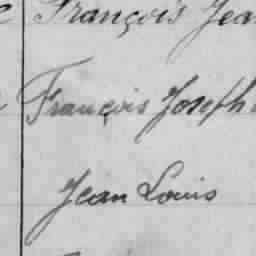 François Jea
François Joseph
Jean Louis